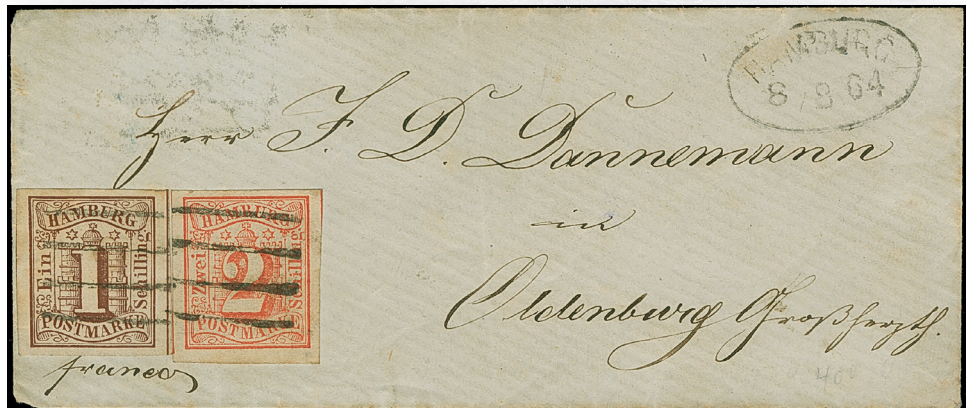 HAMBURG
8/8 64
Herr F. D. Dannemann
in
Oldenburg Großherzth.
HAMBURG
Ein 1 Schilling
POSTMARKE
HAMBURG
Zwei 2
POSTMARKE
franco
40